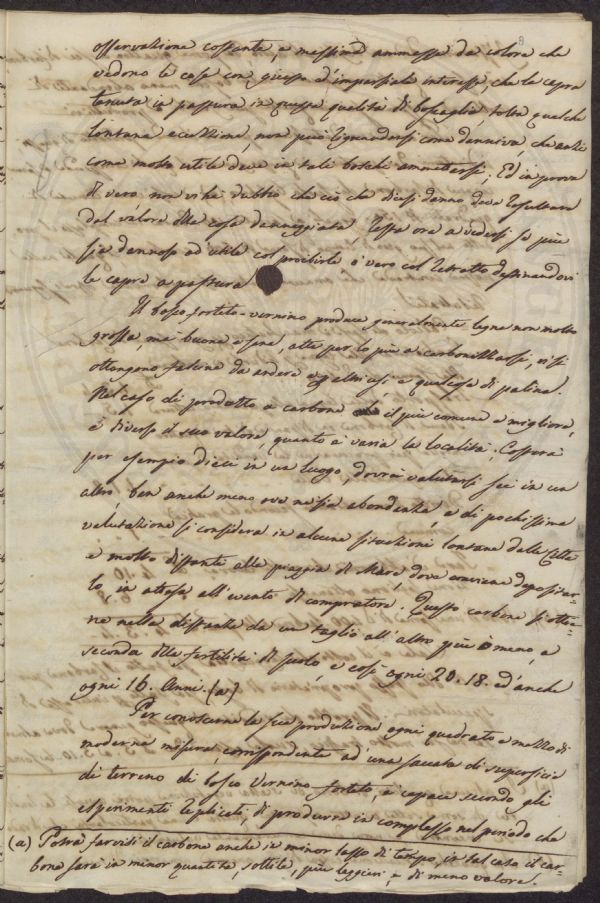 8
osservazione costante, e massima ammessa da coloro che
vedono le cose con giusto ed imparziale interesse, che la capra
tenuta in pastura in questa qualità di boscaglia, tolta qualche
lontana eccezione, non può riguardarsi come dannosa, che anzi
come molto utile deve in tali boschi ammettersi. Ed in prova
Il vero non vi ha dubbio che ciò che dicesi danno deve resultare
dal valore della cosa danneggiata, resta ora a vedersi se più
sia dannoso od utile col proibirle o vero col
le capre a pastura
Il bosco forteto-vernino produce generalmente legne non molto
grosse, ma buone e sane, atte per lo più a carbonizzarsi, vi si
ottengono fascine da ardere e qualcosa di palina.
Nel caso di prodotto a carbone il più comune e migliore,
è diverso il suo valore, quanto è varia la località. Costerà
per esempio dieci in un luogo, dovrà valutarsi sei in un
altro, ben anche meno ove ne sia abondanza, e di pochissima
valutazione si considera in alcune situazioni lontane dalle Città
e molto distante alle piagge di Mare, dove conviene depositar-
lo in attesa all'evento di compratore. Questo carbone si otte-
ne nella distanza da un taglio all'altro più o meno, a
seconda della fertilità di suolo, e così ogni 20. 18. ed anche
ogni 16. Anni. (a)
Per conoscerne la sua produzione ogni quadrato e mezzo di
moderna misura, corrispondente ad una saccata di superficie
di terreno di bosco Vernino forteto, è capace secondo gli
esperimenti replicati, di produrre in complesso nel periodo che
(a) Potrà farsi il carbone anche in minor lasso di tempo, in tal caso il car-
bone sarà in minor quantità, sottile, più leggieri, e di meno valore.